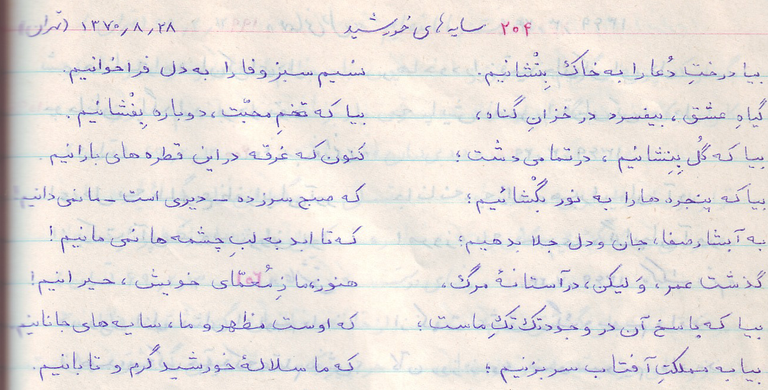 ۲۰۴ سایه‌های خورشید ۱۳۷۰٫۸٫۲۸ (تهران)
بیا درختِ دُعا را به خاک بِنْشانیم؛ نسیم سبز وفا را به دل فرا خوانیم.
گیاهِ عشق، بیفسرد در خزانِ گناه، بیا که تخمِ محبّت، دوباره بِفْشانیم.
بیا که گُل بِنِشانیم، در تمامیِ دشت؛ کنون که غرقه در این قطره های بارانیم
بیا که پنجره ها را به نور بگْشائیم؛ که صبح سرزده - دیری است - ما نمی دانیم!
به آبشار صفا، جان و دل جلا بدهیم؛ که تا ابد به لبِ چشمه ها نمی مانیم!
گذشت عمر، وَ لیکن، در آستانهٔ مرگ، هنوز، ما زِ مُعمّای خویش، حیرانیم!
بیا که پاسخ آن در وجود تک تکِ ماست؛ که اوست مظهر و ما، سایه های جانانیم
بیا به مملکتِ آفتاب سر بزنیم؛ که ما سلالهٔ خورشید گرم و تابانیم.